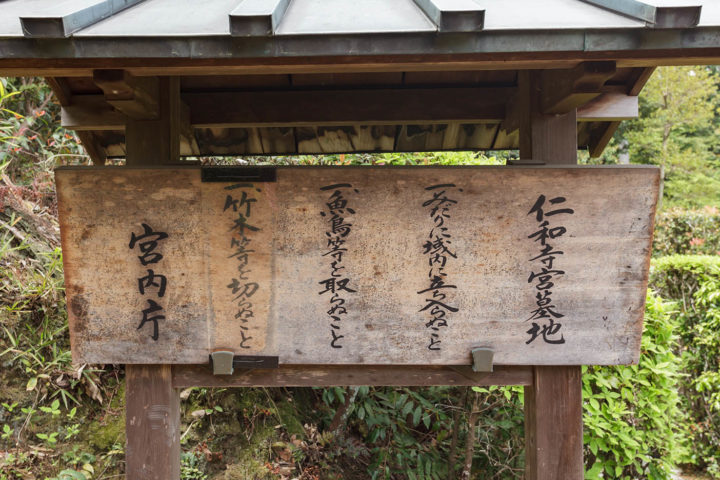 仁和寺宮墓地
一、みだりに域内に立ち入らぬこと
一、魚鳥等を取らぬこと
一、竹木等を切らぬこと
宮内庁